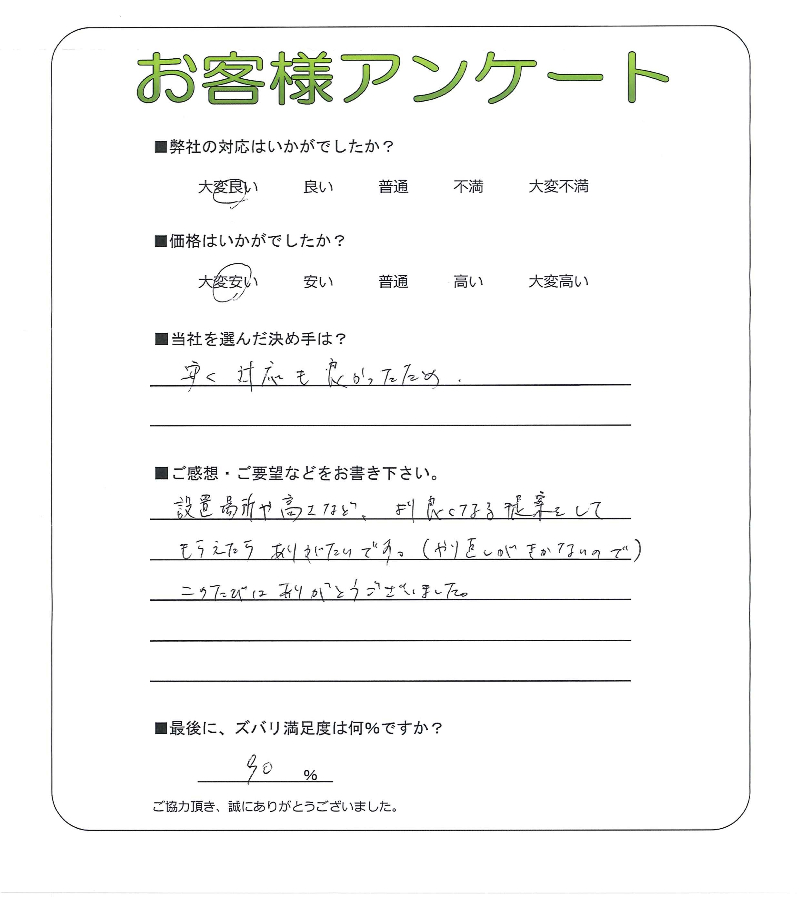 お客様アンケート
■弊社の対応はいかがでしたか？
大変良い 良い 普通 不満 大変不満
■価格はいかがでしたか？
大変安い 安い 普通 高い 大変高い
■当社を選んだ決め手は？
安く対応も良かったため.
■ご感想・ご要望などをお書き下さい。
設置場所や高さなど、より良くなる提案をして
もらえたらありがたいです。（やり直しがきかないので）
このたびはありがとうございました。
■最後に、ズバリ満足度は何％ですか？
90 ％
ご協力頂き、誠にありがとうございました。